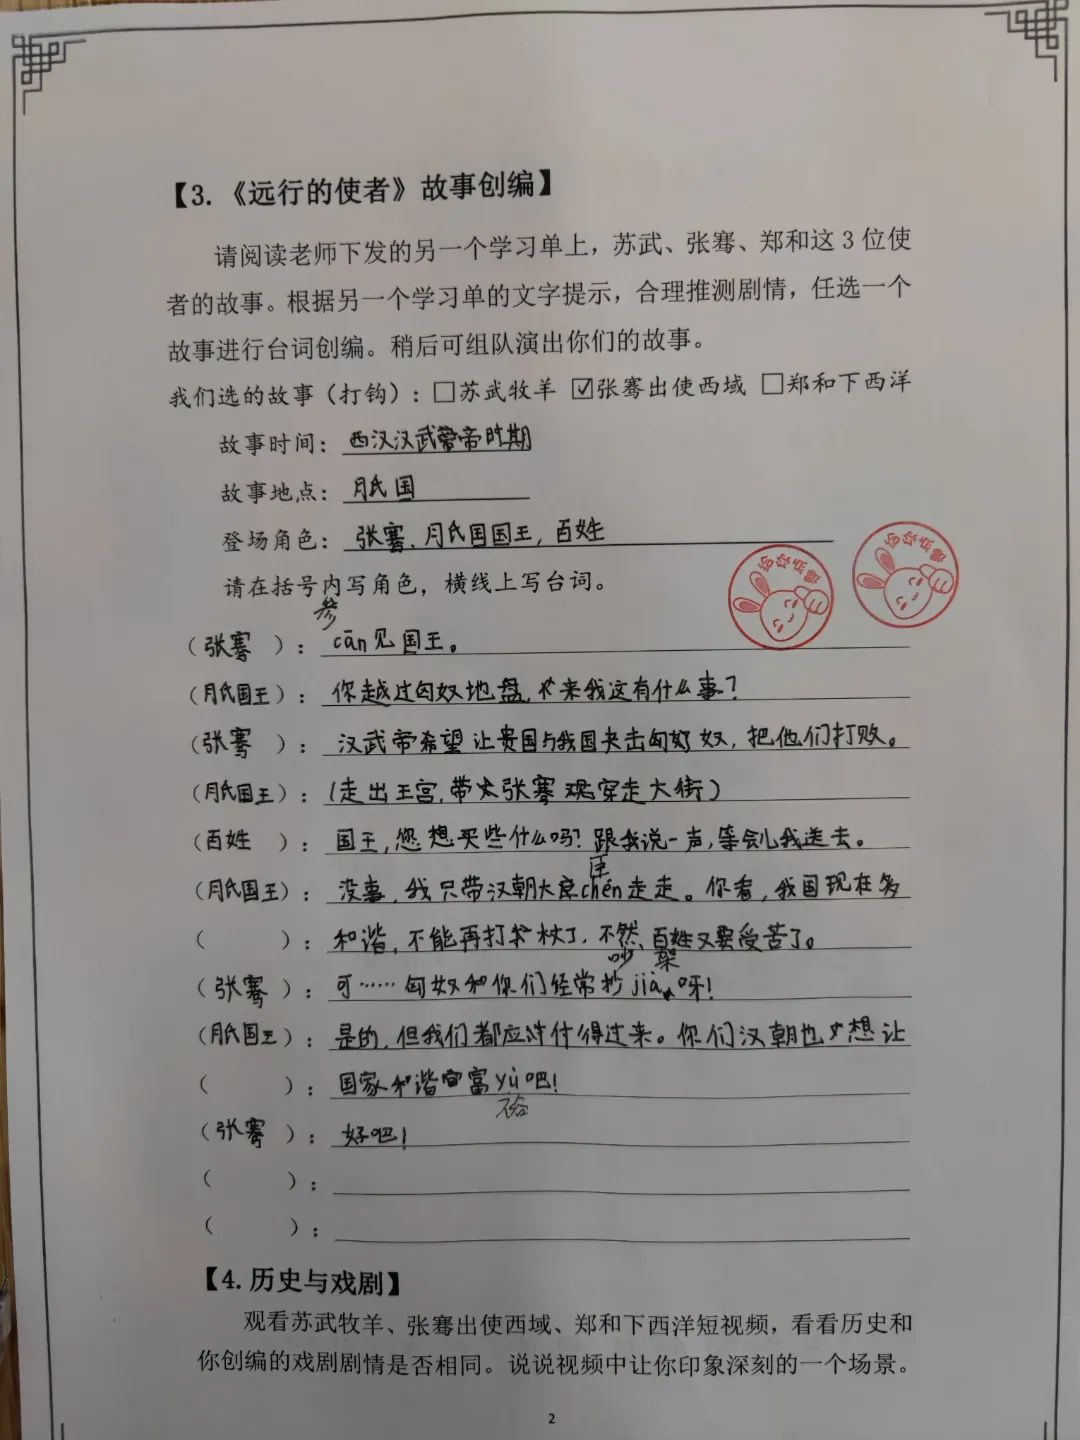 【3.《远行的使者》故事创编】
请阅读老师下发的另一个学习单上，苏武、张骞、郑和这3位使
者的故事。根据另一个学习单的文字提示，合理推测剧情，任选一个
故事进行台词创编。稍后可组队演出你们的故事。
我们选的故事（打钩）：□苏武牧羊 ☑张骞出使西域 □郑和下西洋
故事时间：西汉汉武帝时期
故事地点：月氏国
登场角色：张骞、月氏国国王，百姓
请在括号内写角色，横线上写台词。
参
（张骞）：cān见国王。
（月氏国王）：你越过匈奴地盘，来我这有什么事？
（张骞）：汉武帝希望让贵国与我国夹击匈奴，把他们打败。
（月氏国王）：（走出王宫，带张骞穿走大街）
（百姓）：国王，您想买些什么吗？跟我说一声，等会儿我送去。
臣
（月氏国王）：没事，我只带汉朝大chén走走。你看，我国现在多
（ ）：和谐，不能再打仗了，不然，百姓又要受苦了。
吵 架
（张骞）：可……匈奴和你们经常抄jià呀！
（月氏国王）：是的，但我们都应付得过来。你们汉朝也想让
（ ）：国家和谐富yù吧！
裕
（张骞）：好吧！
（ ）：
（ ）：
【4.历史与戏剧】
观看苏武牧羊、张骞出使西域、郑和下西洋短视频，看看历史和
你创编的戏剧剧情是否相同。说说视频中让你印象深刻的一个场景。
2